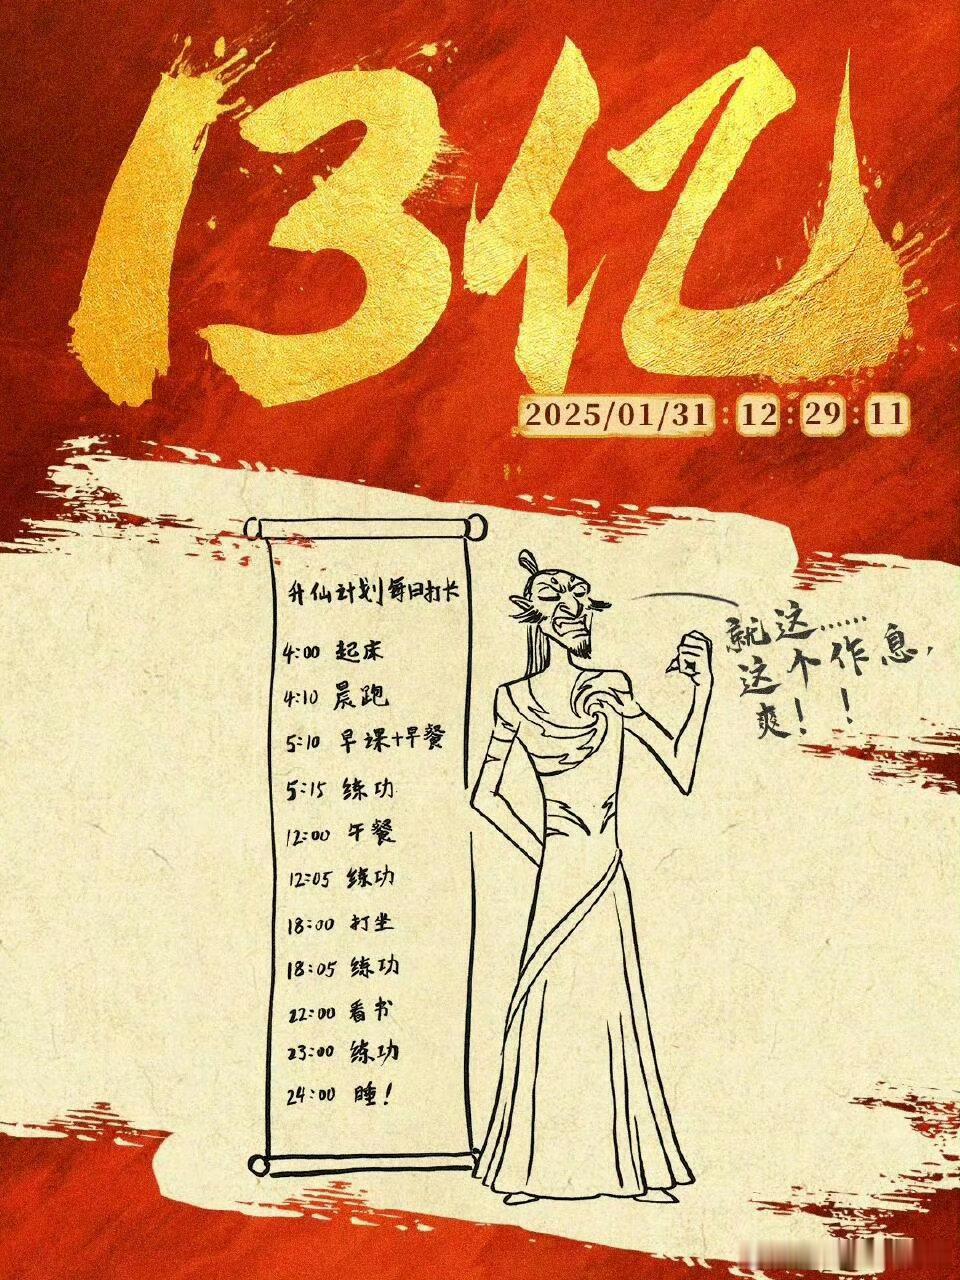 13亿
2025/01/31:12:29:11
升仙计划每日打卡
4:00 起床
4:10 晨跑
5:10 早课+早餐
5:15 练功
12:00 午餐
12:05 练功
18:00 打坐
18:05 练功
22:00 看书
23:00 练功
24:00 睡！
就这……
这个作息，
爽！！